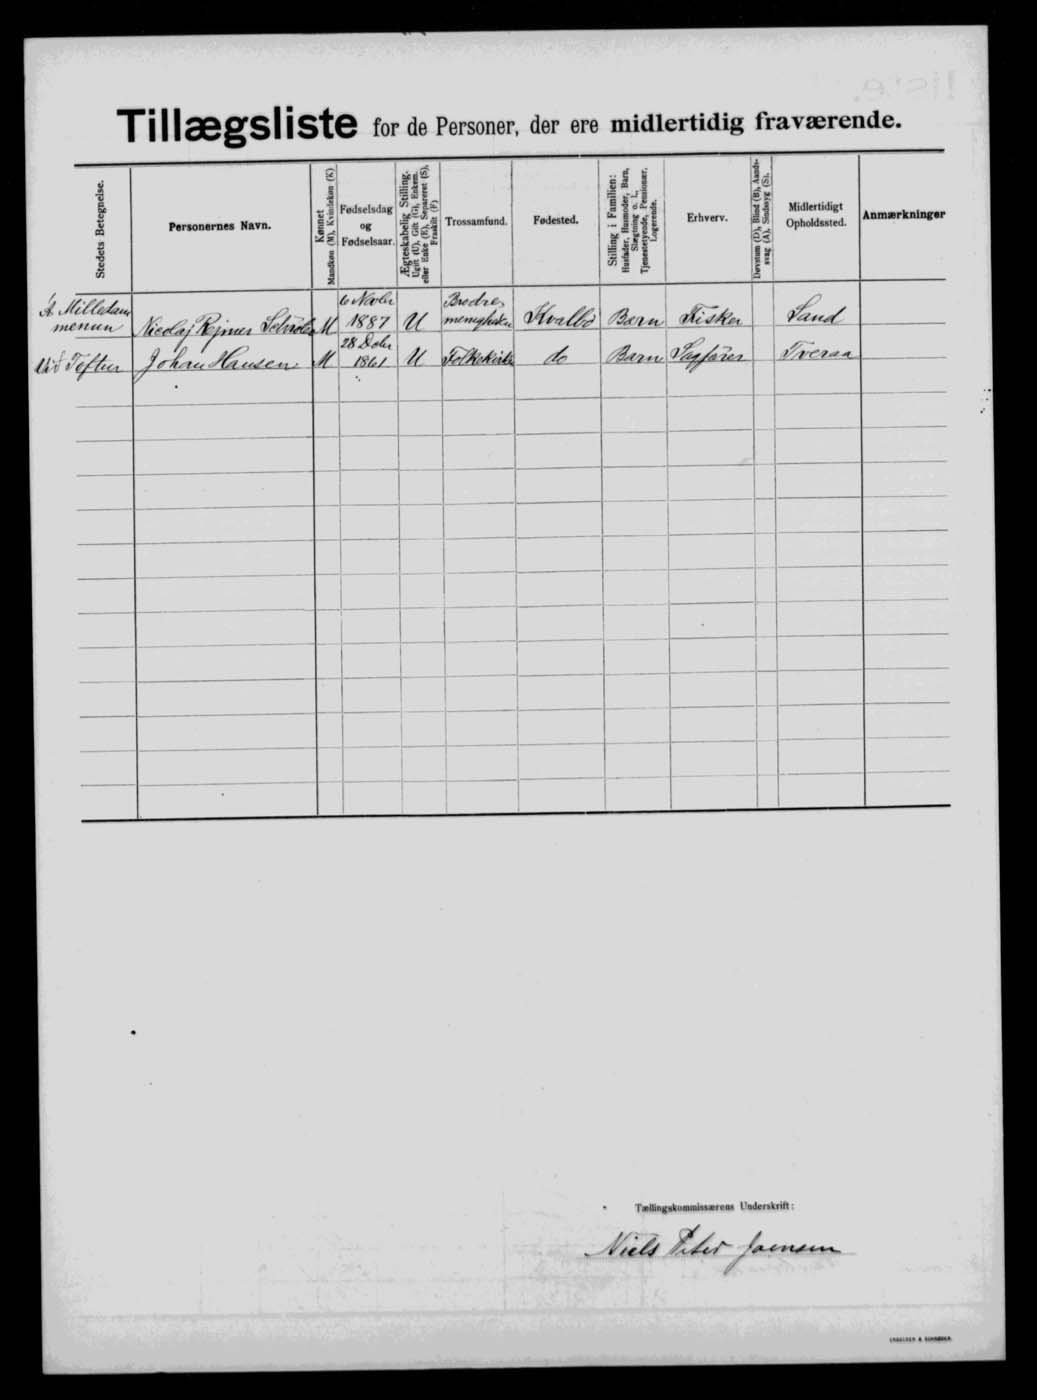 Tillægsliste for de Personer, der ere midlertidig fraværende.
Stedets Betegnelse.
Personernes Navn.
Kønnet
Mandkøn (M), Kvindekøn (K)
Fødselsdag
og
Fødselsaar.
Ægteskabelig Stilling.
Ugift (U), Gift (G), Enkem.
eller Enke (E), Separeret (S),
Fraskilt (F)
Trossamfund.
Fødested.
Stilling i Familien:
Husfader, Husmoder, Barn,
Slægtning o. l.,
Tjenestetyende, Pensionær,
Logerende.
Erhverv.
Døvstum (D), Blind (B), Aands-
svag (A), Sindssyg (S).
Midlertidigt
Opholdssted.
Anmærkninger
6 Novbr Brødre
Nicolaj Rejmer M 1887 U menigheden Kvalbø Barn Fisker Sand
28 Debr
Johan Hansen M 1861 U Folkekirken do Barn Sagfører Tveraa
Tællingskommissærens Underskrift:
Niels Peter Joensen